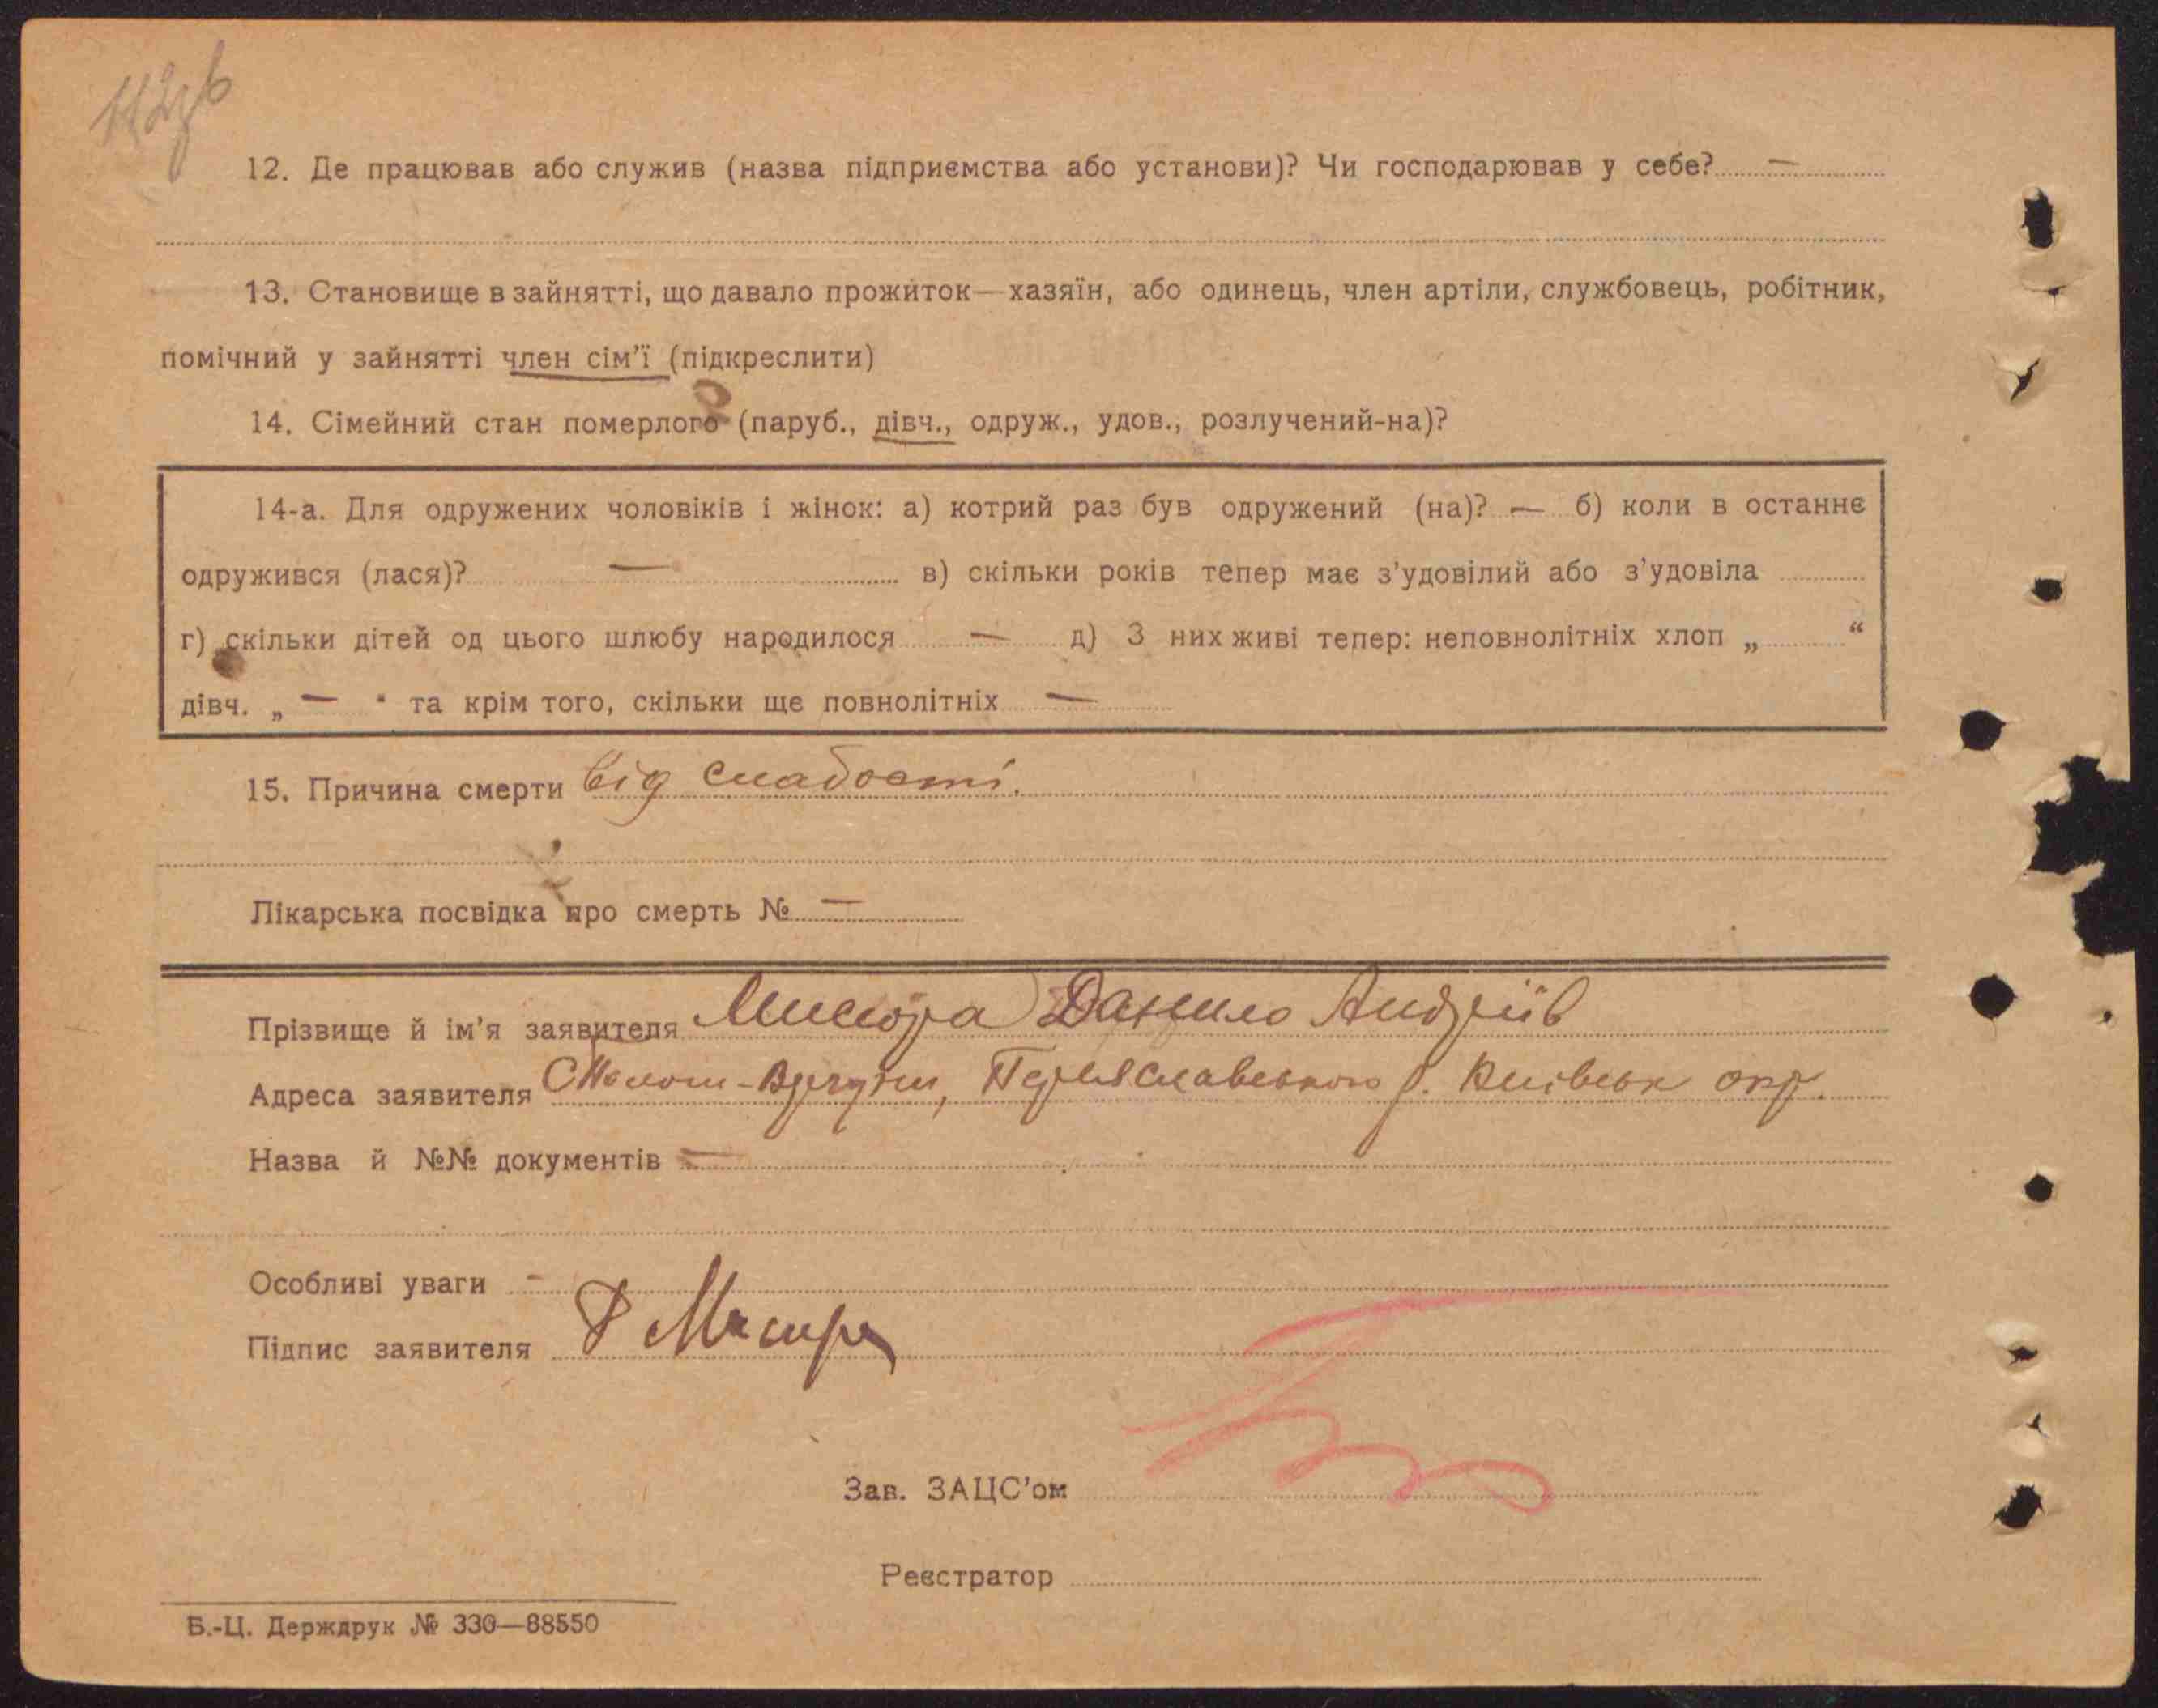 12. Де працював або служив (назва підприємства або установи)? Чи господарював у себе? —
13. Становище в зайнятті, що давало прожиток—хазяїн, або одинець, член артіли, службовець, робітник,
помічний у зайнятті член сім'ї (підкреслити)
14. Сімейний стан померлого (паруб., дівч., одруж., удов., розлучений-на)?
14-а. Для одружених чоловіків і жінок: а) котрий раз був одружений (на)? — б) коли в останнє
одружився (лася)? — в) скільки років тепер має з'удовілий або з'удовіла
г) скільки дітей од цього шлюбу народилося — д) З них живі тепер: неповнолітніх хлоп „ “
дівч. „ — “ та крім того, скільки ще повнолітніх —
15. Причина смерти від слабости.
Лікарська посвідка про смерть № —
Прізвище й ім'я заявителя Данило Андріїв
Адреса заявителя Переяславського р. Київськ окр.
Назва й №№ документів —
Особливі уваги —
Підпис заявителя
Зав. ЗАЦС'ом
Реєстратор
Б.-Ц. Держдрук № 330—88550